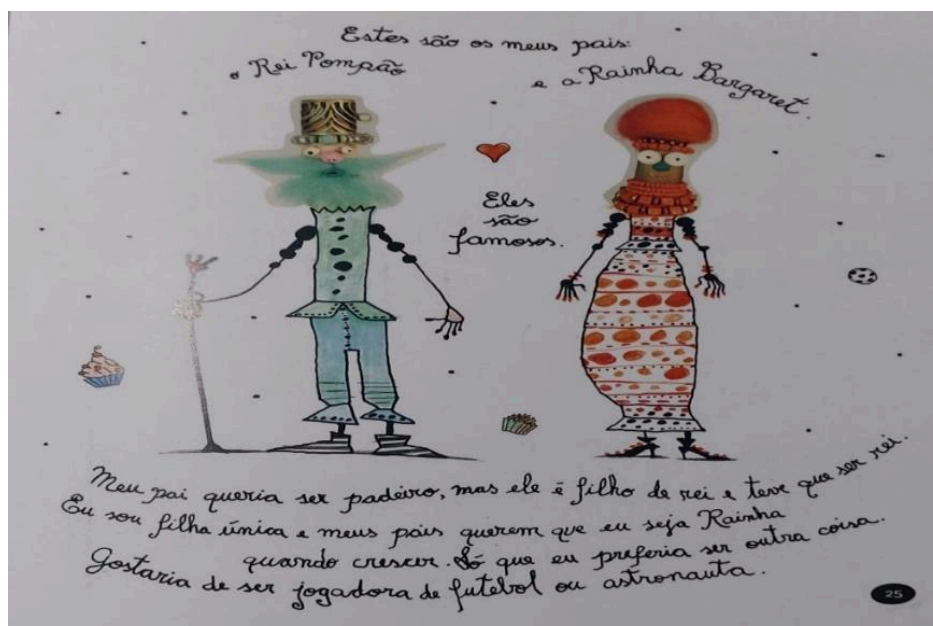 Estes são os meus pais:
o Rei Pompão
e a Rainha Bargaret.
Eles
são
famosos.
Meu pai queria ser padeiro, mas ele é filho de rei e teve que ser rei.
Eu sou filha única e meus pais querem que eu seja Rainha
quando crescer. Só que eu preferia ser outra coisa.
Gostaria de ser jogadora de futebol ou astronauta.
25